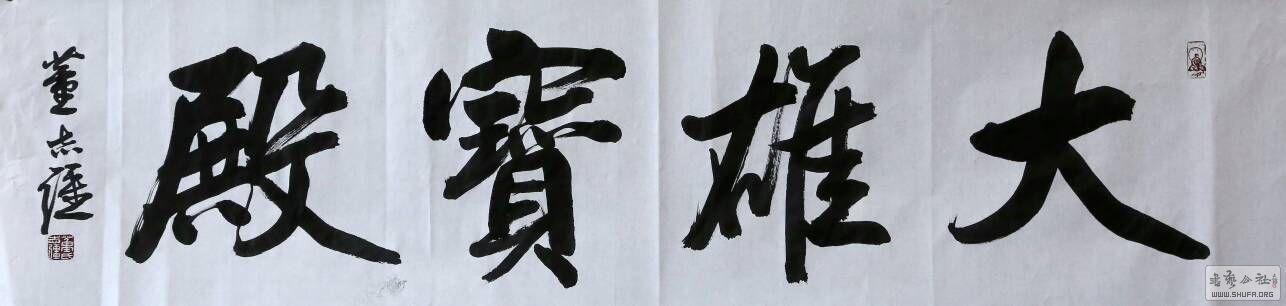 大雄寶殿
董志强
書藝公社
WWW.SHUFA.ORG